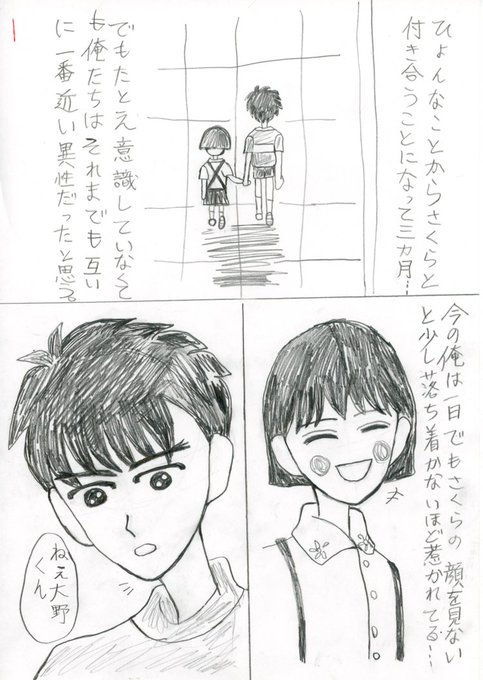 ひょんなことからさくらと
付き合うことになって三カ月…
でもたとえ意識していなくて
も俺たちはそれまでも互い
に一番近い異性だったと思う。
今の俺は一日でもさくらの顔を見ない
と少し落ち着かないほど惹かれてる…
ねえ大野
くん
1